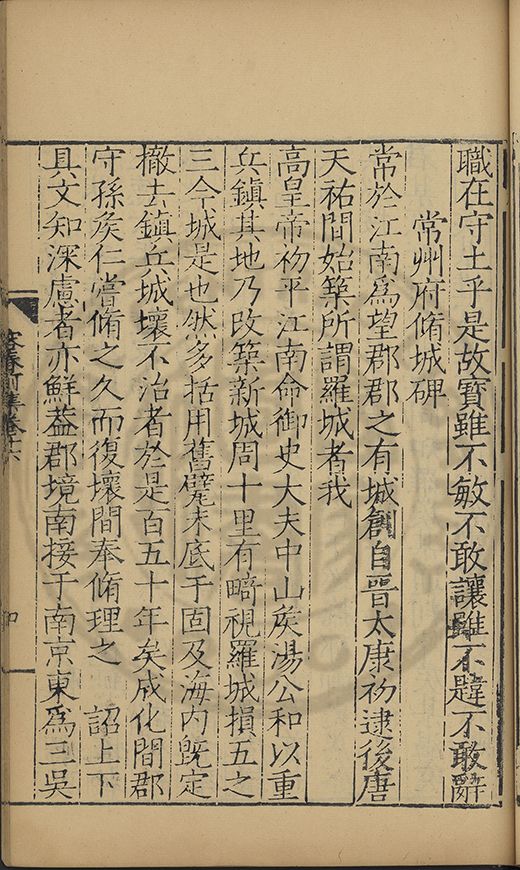 職在守土乎是故寳雖不敏不敢讓雖不韙不敢辭
常州府脩城碑
常於江南爲望郡郡之有城創自晉太康初逮後唐
天祐間始築所謂羅城者我
高皇帝初平江南命御史大夫中山矦湯公和以重
兵鎮其地乃改築新城周十里有畸視羅城損五之
三今城是也然多括用舊甓未底于固及海内既定
撤去鎮兵城壞不治者於是百五十年矣成化間郡
守孫矦仁嘗脩之久而復壞間奉脩理之 詔上下
具文知深慮者亦鮮葢郡境南接于南京東爲三吳
容春堂集卷十六